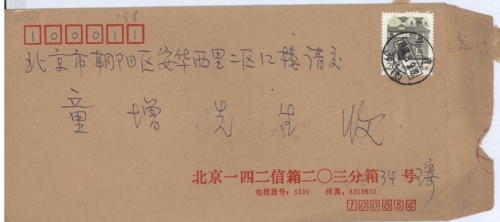 198
100011
北京市朝阳区安华西里二区12楼请交
童增先生收
北京一四二信箱二〇三分箱34号
电报挂号：5330 传真：8213632
100854